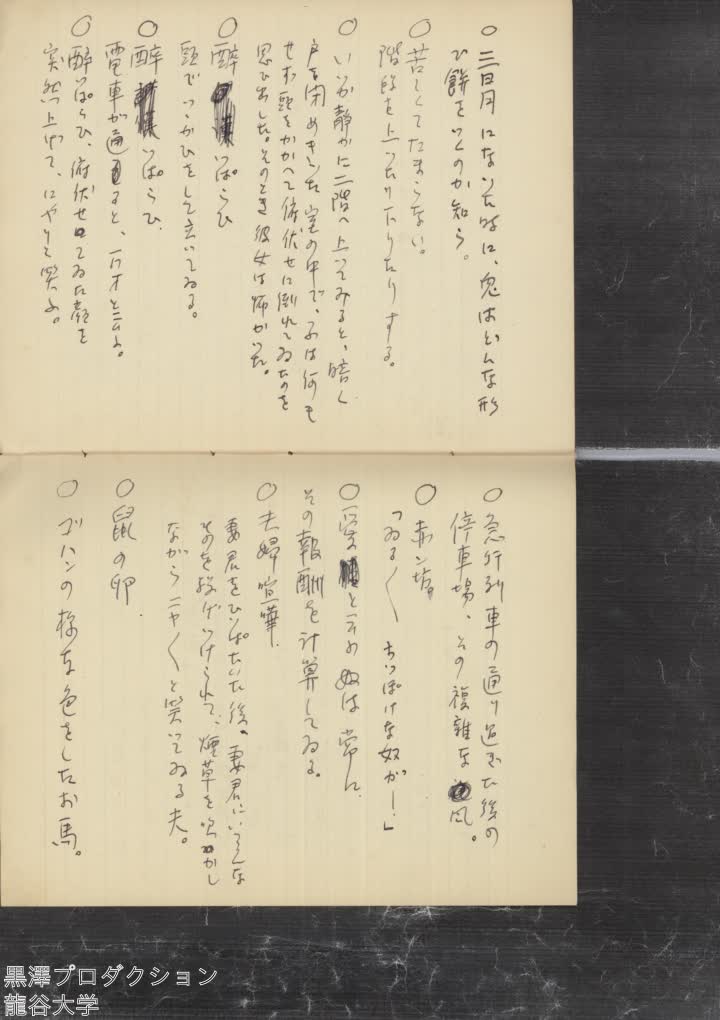 ○三日月になつた時に、兎はどんな形
で餅をつくのか知ら。
○苦しくてたまらない。
階段を上つたり下りたりする。
○いつか静かに二階へ上つてみると、暗く
戸を閉めきつた室の中で、子は何も
せず頭をかかへて俯伏せに倒れてゐたのを
思ひ出した。そのとき彼女は怖かつた。
○酔つぱらひ
頭でつつかひをして立つてゐる。
○酔つぱらひ、
電車が通ると、一寸と云ふ。
○酔つぱらひ、俯伏せてゐた顔を
突然上げて、にやりと笑ふ。
○急行列車の通り過ぎた後の
停車場、その複雑な風。
○赤ン坊。
「ゐる〱 ちつぽけな奴が―」
○愛と云ふ奴は常に
その報酬を計算してゐる。
○夫婦喧嘩.
妻君をひつぱたいた後、妻君にいろんな
ものを投げつけられて、煙草を吹かし
ながらニヤ〱と笑つてゐる夫。
○鼠の卵.
○ゴハンの様な色をしたお馬。
黒澤プロダクション
龍谷大学